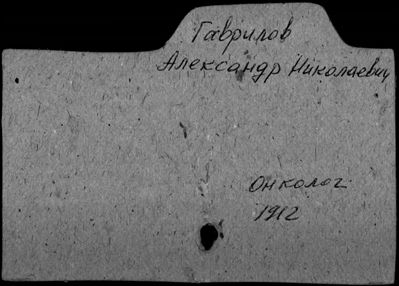 Гаврилов
Александр Николаевич
Онколог
1912